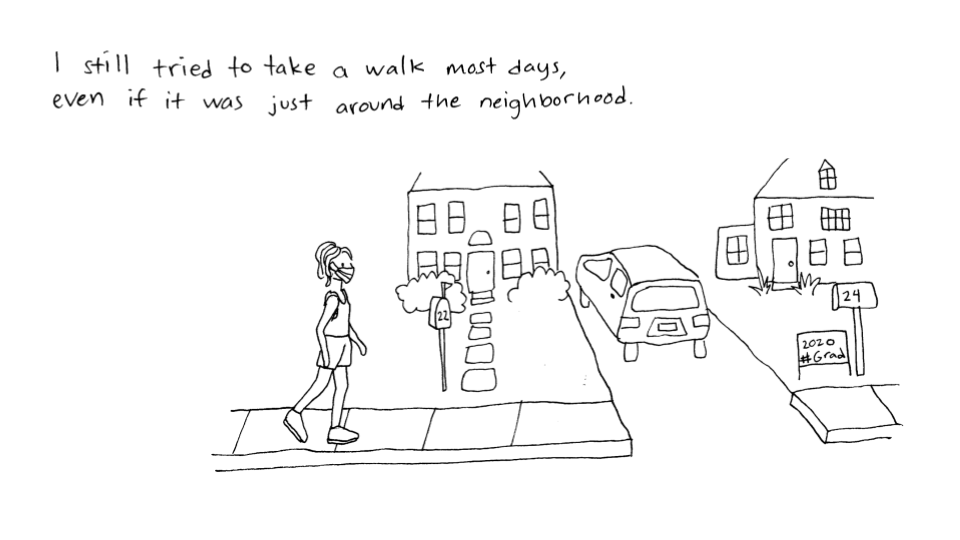 I still tried to take a walk most days,
even if it was just around the neighborhood.
22
24
2020
#Grad